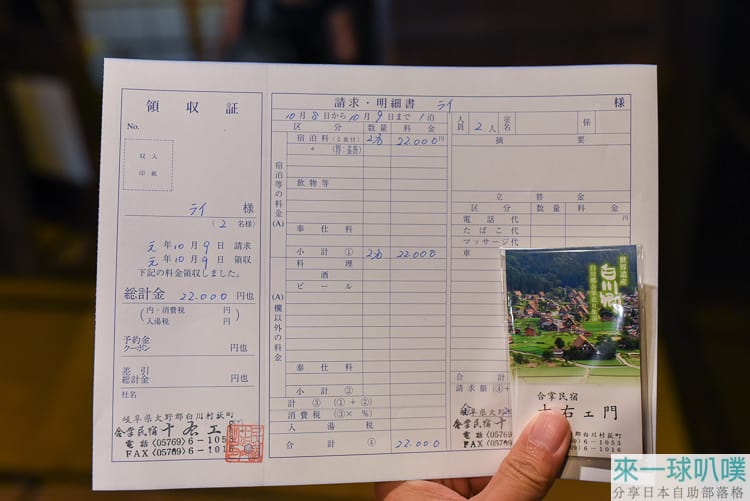 領収証
No.
収入
印紙
ライ 様
(2名様)
元年10月9日 請求
元年10月9日 領収
下記の料金領収しました。
総計金 22.000円也
(内・消費税
入湯税 )
予約金
クーポン 円也
差引
総計金 円也
社名
岐阜県大野郡白川村荻町
合掌民宿 十右ェ門
電話(05769)6-1053
FAX(05769)6-1016
請求・明細書 ライ 様
10月8日から10月9日まで1泊
人員 2人 宛名 係
区分 数量 料金
摘要
宿泊等の料金(A)
宿泊料(2食付) 2名 22.000円
+
飲物等
奉仕料
小計① 2名 22.000
(A)欄以外の料金
料理
酒
ビール
奉仕料
小計②
計③(①+②)
消費税(③×%)
入湯税
合計④ 22.000
立替金
区分 数量 料金
電話代 円
たばこ代
マッサージ代
車
合計
請求額(④+
岐阜県
合掌民宿
電話
FAX
世界遺産
白川郷
白川郷合掌造り集落
合掌民宿
十右ェ門
郡白川村荻町
6-1053
6-1016
來一球叭噗
分享日本自助部落格